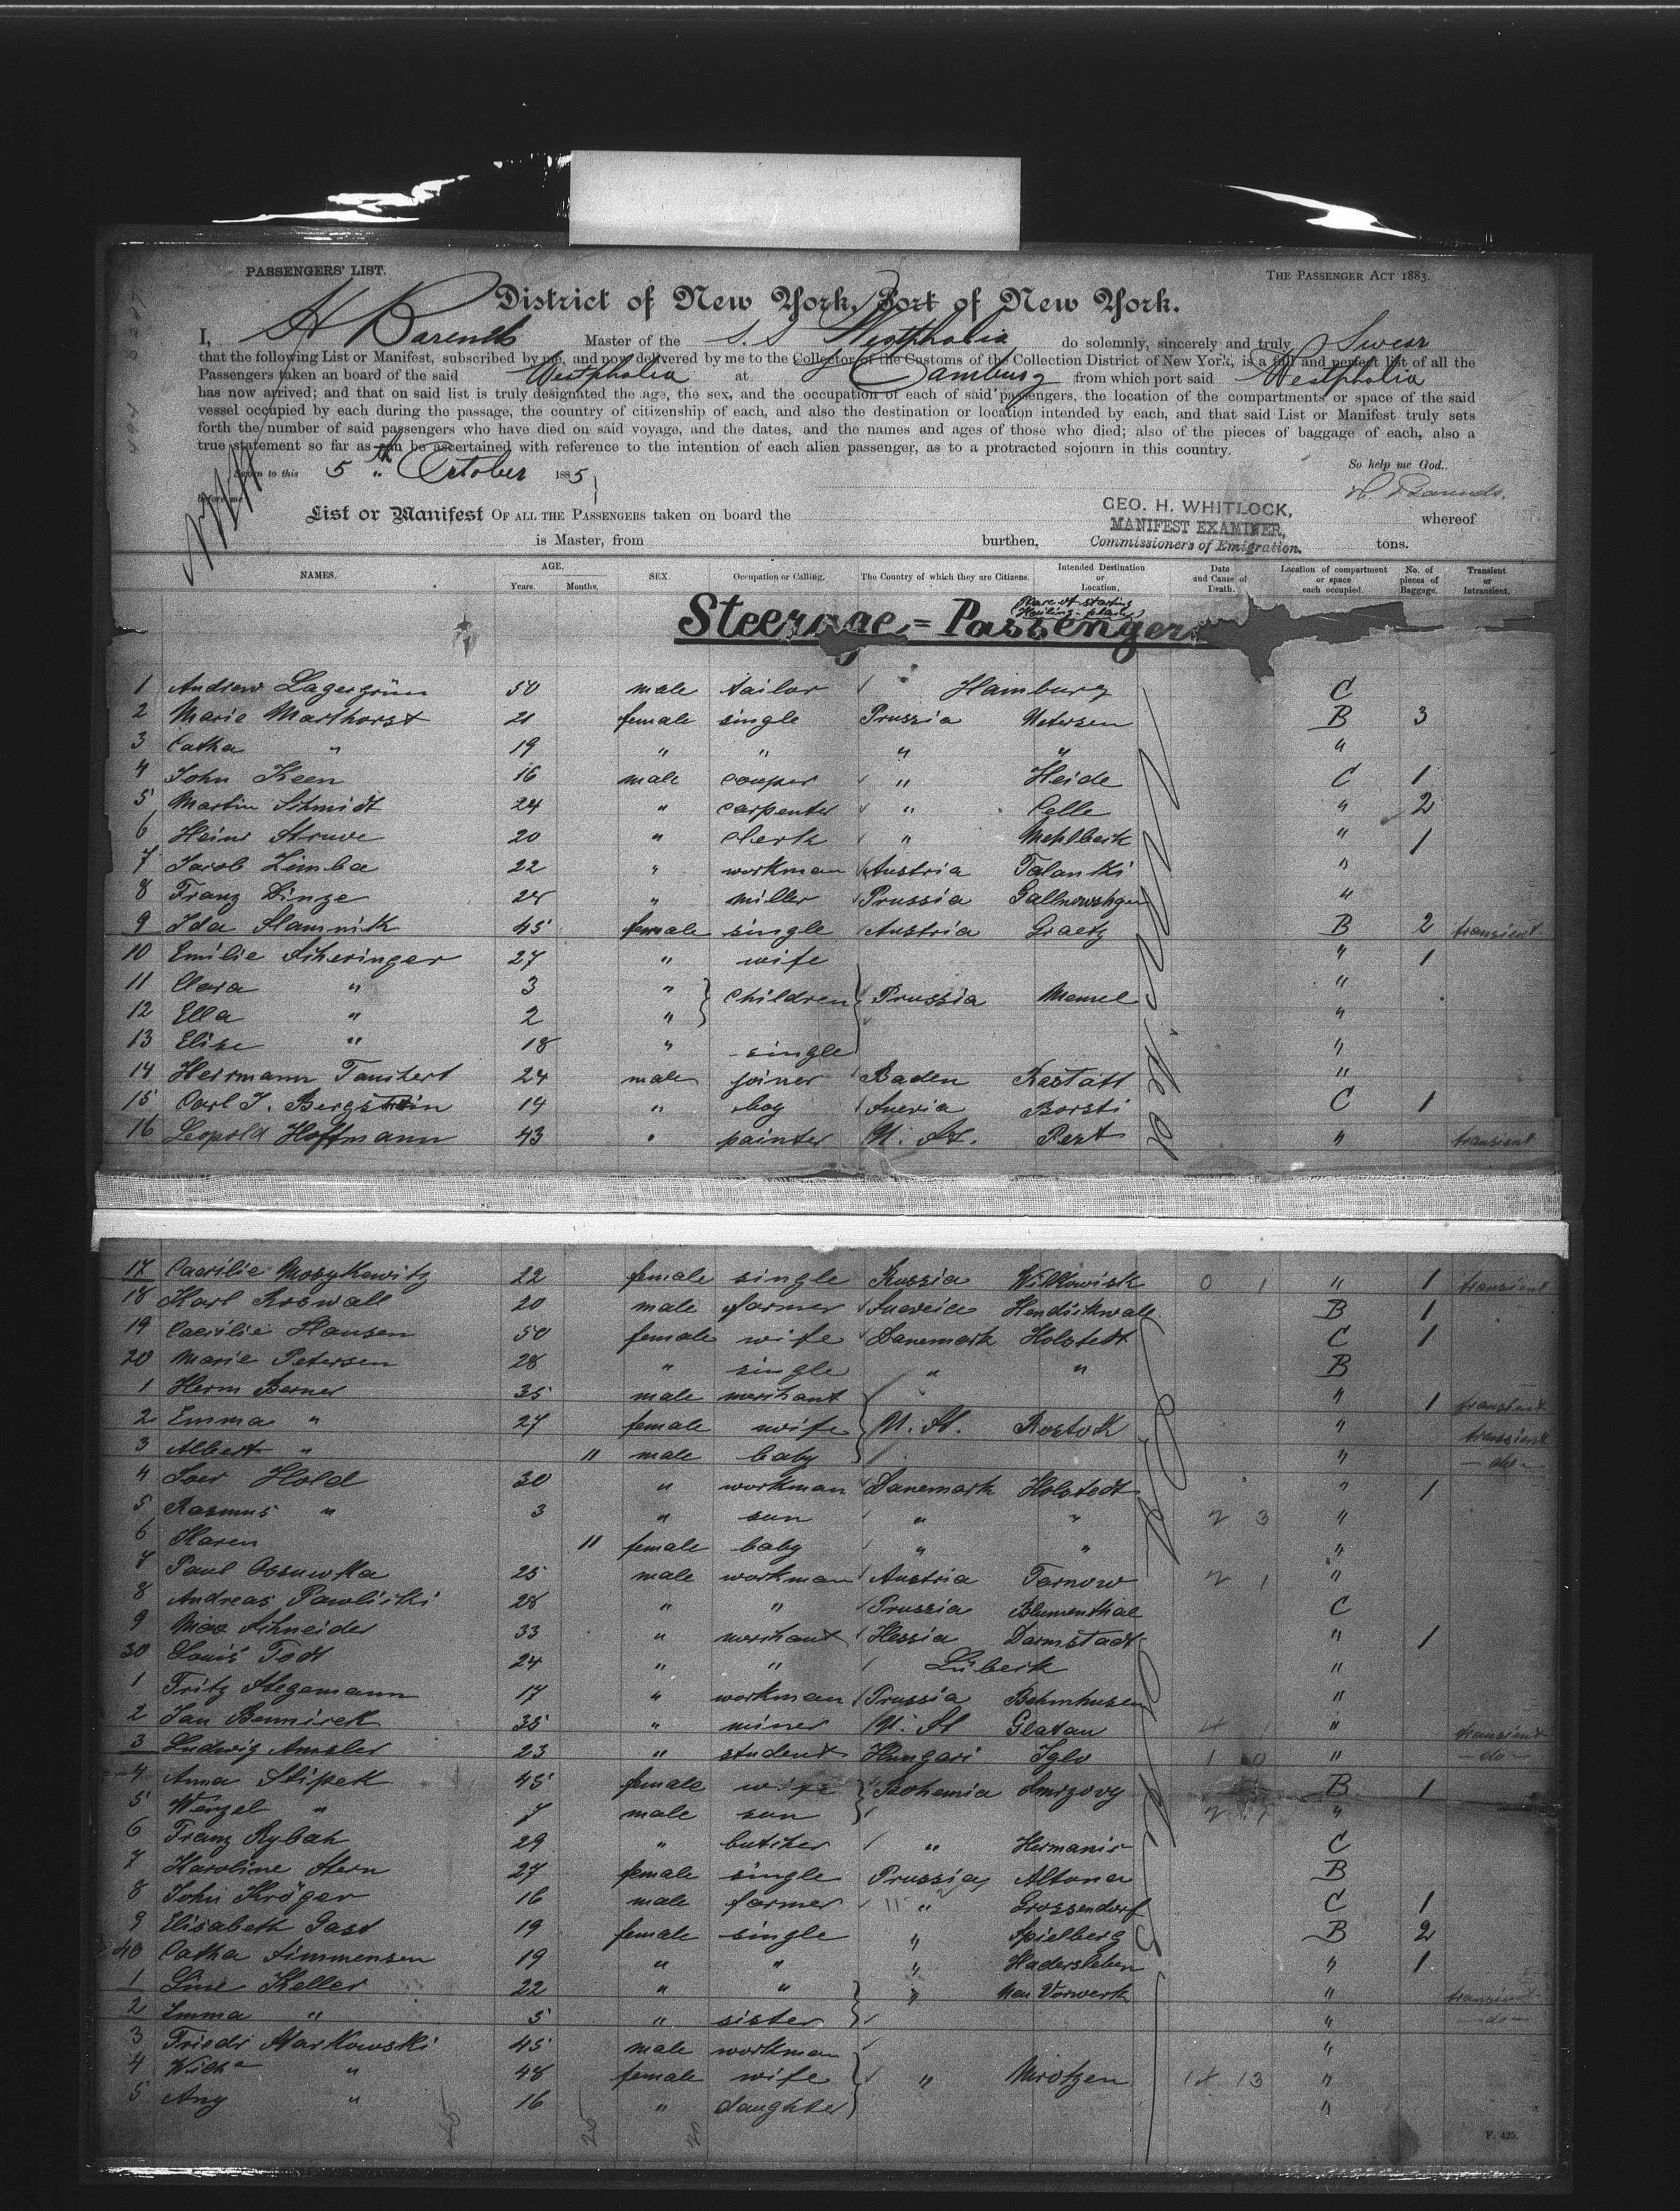 PASSENGERS' LIST. THE PASSENGER ACT 1883.
District of New York, Port of New York.
I, H Barends Master of the S. S Westphalia do solemnly, sincerely and truly Swear
that the following List or Manifest, subscribed by me, and now delivered by me to the Collector of the Customs of the Collection District of New York, is a full and perfect list of all the
Passengers taken an board of the said Westphalia at Hamburg from which port said Westphalia
has now arrived; and that on said list is truly designated the age, the sex, and the occupation of each of said passengers, the location of the compartments or space of the said
vessel occupied by each during the passage, the country of citizenship of each, and also the destination or location intended by each, and that said List or Manifest truly sets
forth the number of said passengers who have died on said voyage, and the dates, and the names and ages of those who died; also of the pieces of baggage of each, also a
true statement so far as can be ascertained with reference to the intention of each alien passenger, as to a protracted sojourn in this country.
Sworn to this 5th October 1885 So help me God.
before me H Barends.
List or Manifest OF ALL THE PASSENGERS taken on board the GEO. H. WHITLOCK, whereof
MANIFEST EXAMINER,
is Master, from burthen, Commissioners of Emigration. tons.
NAMES. AGE. Years. Months. SEX. Occupation or Calling. The Country of which they are Citizens. Intended Destination or Location. Date and Cause of Death. Location of compartment or space each occupied. No. of pieces of Baggage. Transient or Intransient.
Place of starting
Steerage = Passenger
1 Andrew Lagergrün 50 male tailor Hamburg C
2 Marie Marthorst 21 female single Prussia Uetersen B 3
3 Catha " 19 " " " " "
4 John Keen 16 male couper " Heide C 1
5 Martin Schmidt 24 " carpenter " Celle " 2
6 Heinr Struve 20 " clerk " Mehlbeck " 1
7 Jacob Zimba 22 " workman Austria Talanski "
8 Franz Dinge 24 " miller Prussia "
9 Ida Slamnik 45 female single Austria Graetz B 2 transient
10 Emilie Scheringer 27 " wife " 1
11 Clara " 3 " children Prussia Memel "
12 Ella " 2 " "
13 Elise " 18 " single "
14 Herrmann Tauchert 24 male joiner Baden Rastatt "
15 Carl J. Bergström 14 " boy Suecia Borsti C 1
16 Leopold Hoffmann 43 " painter U. St. Pest " transient
17 Caecilie Mosykewitz 22 female single Russia Wilkowisk 0 1 " 1 transient
18 Karl Roswall 20 male farmer Suecia Hendickwall B 1
19 Caecilie Hansen 50 female wife Danemark Holstedt C 1
20 Marie Petersen 28 " single " " B
1 Herm Berner 35 male merchant " 1 transient
2 Emma " 27 female wife U. St. Rostock " transient
3 Albert " 11 male baby " -do-
4 Hold 30 " workman Danemark Holstedt " 1
5 Rasmus " 3 " son " " 2 3 "
6 Karen 11 female baby " " "
7 Paul Ossuwka 25 male workman Austria Tarnow 2 1 "
8 Andreas Pawlitski 28 " " Prussia Blumenthal C
9 Max Schneider 33 " merchant Hessia Darmstadt " 1
30 Louis Todt 24 " " Lübeck "
1 Fritz Stegemann 17 " workman Prussia Behmhusen "
2 Jan Bennisek 35 " miner U. St Glatau 4 1 " transient
3 Ludwig Amsler 23 " student Hungari Iglo 1 0 " -do-
4 Anna Stipek 45 female wife Bohemia Smrzovy B 1
5 Wenzel " 7 male son 2 1 "
6 Franz Rybak 29 " butcher " Hermanic C
7 Karoline Stern 27 female single Prussia Altona B
8 John Kröger 16 male farmer " Grossendorf C 1
9 Elisabeth Gast 19 female single " Spielberg B 2
40 Catha Simmensen 19 " " " Hadersleben " 1
1 Line Keller 22 " " " Neu Vorwerk " transient
2 Emma " 5 " sister " -do-
3 Friedr Markowski 45 male workman "
4 Wilh " 48 female wife " Mrotzen 14 13 "
5 Any " 16 " daughter "
F. 425.